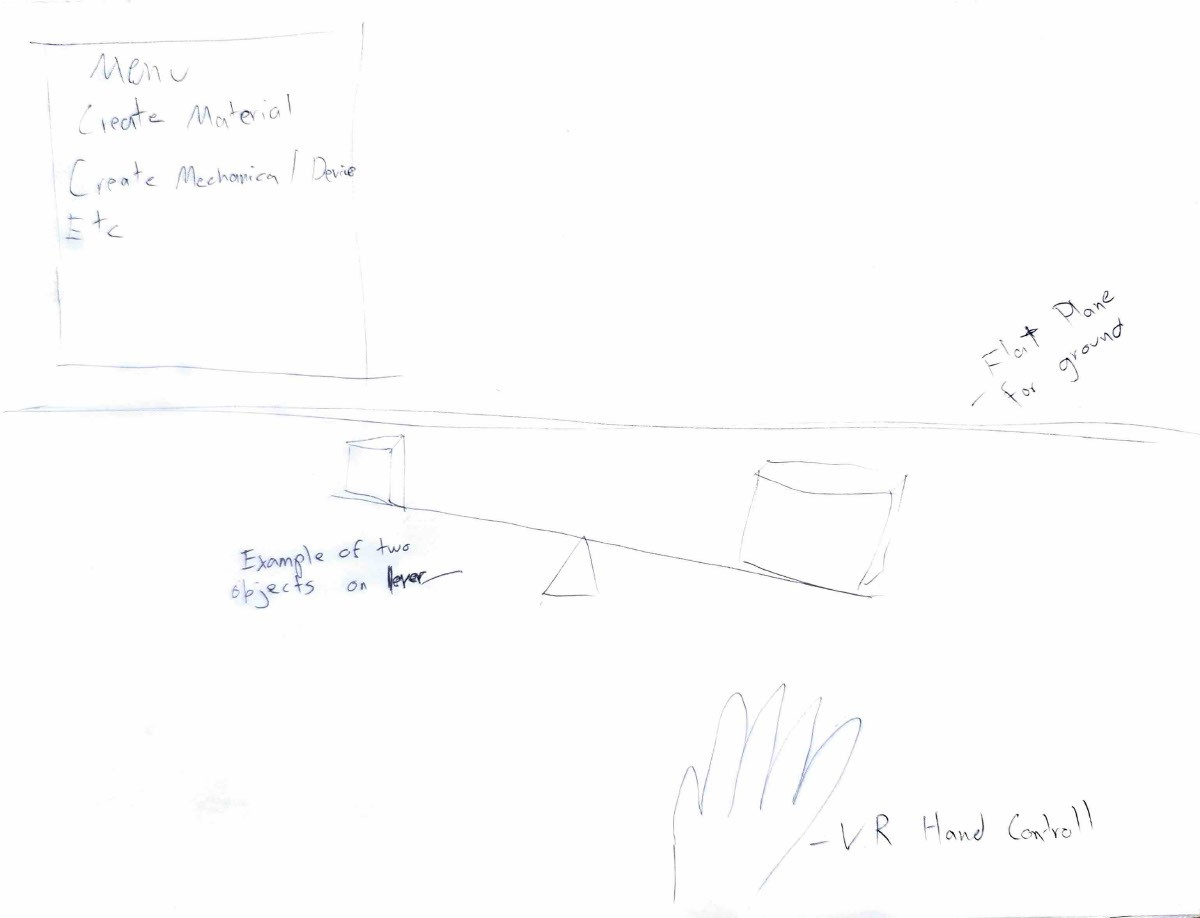 Menu
Create Material
Create Mechanical Device
Etc
Flat Plane
- for ground
Example of two
objects on lever
- V.R Hand Controll